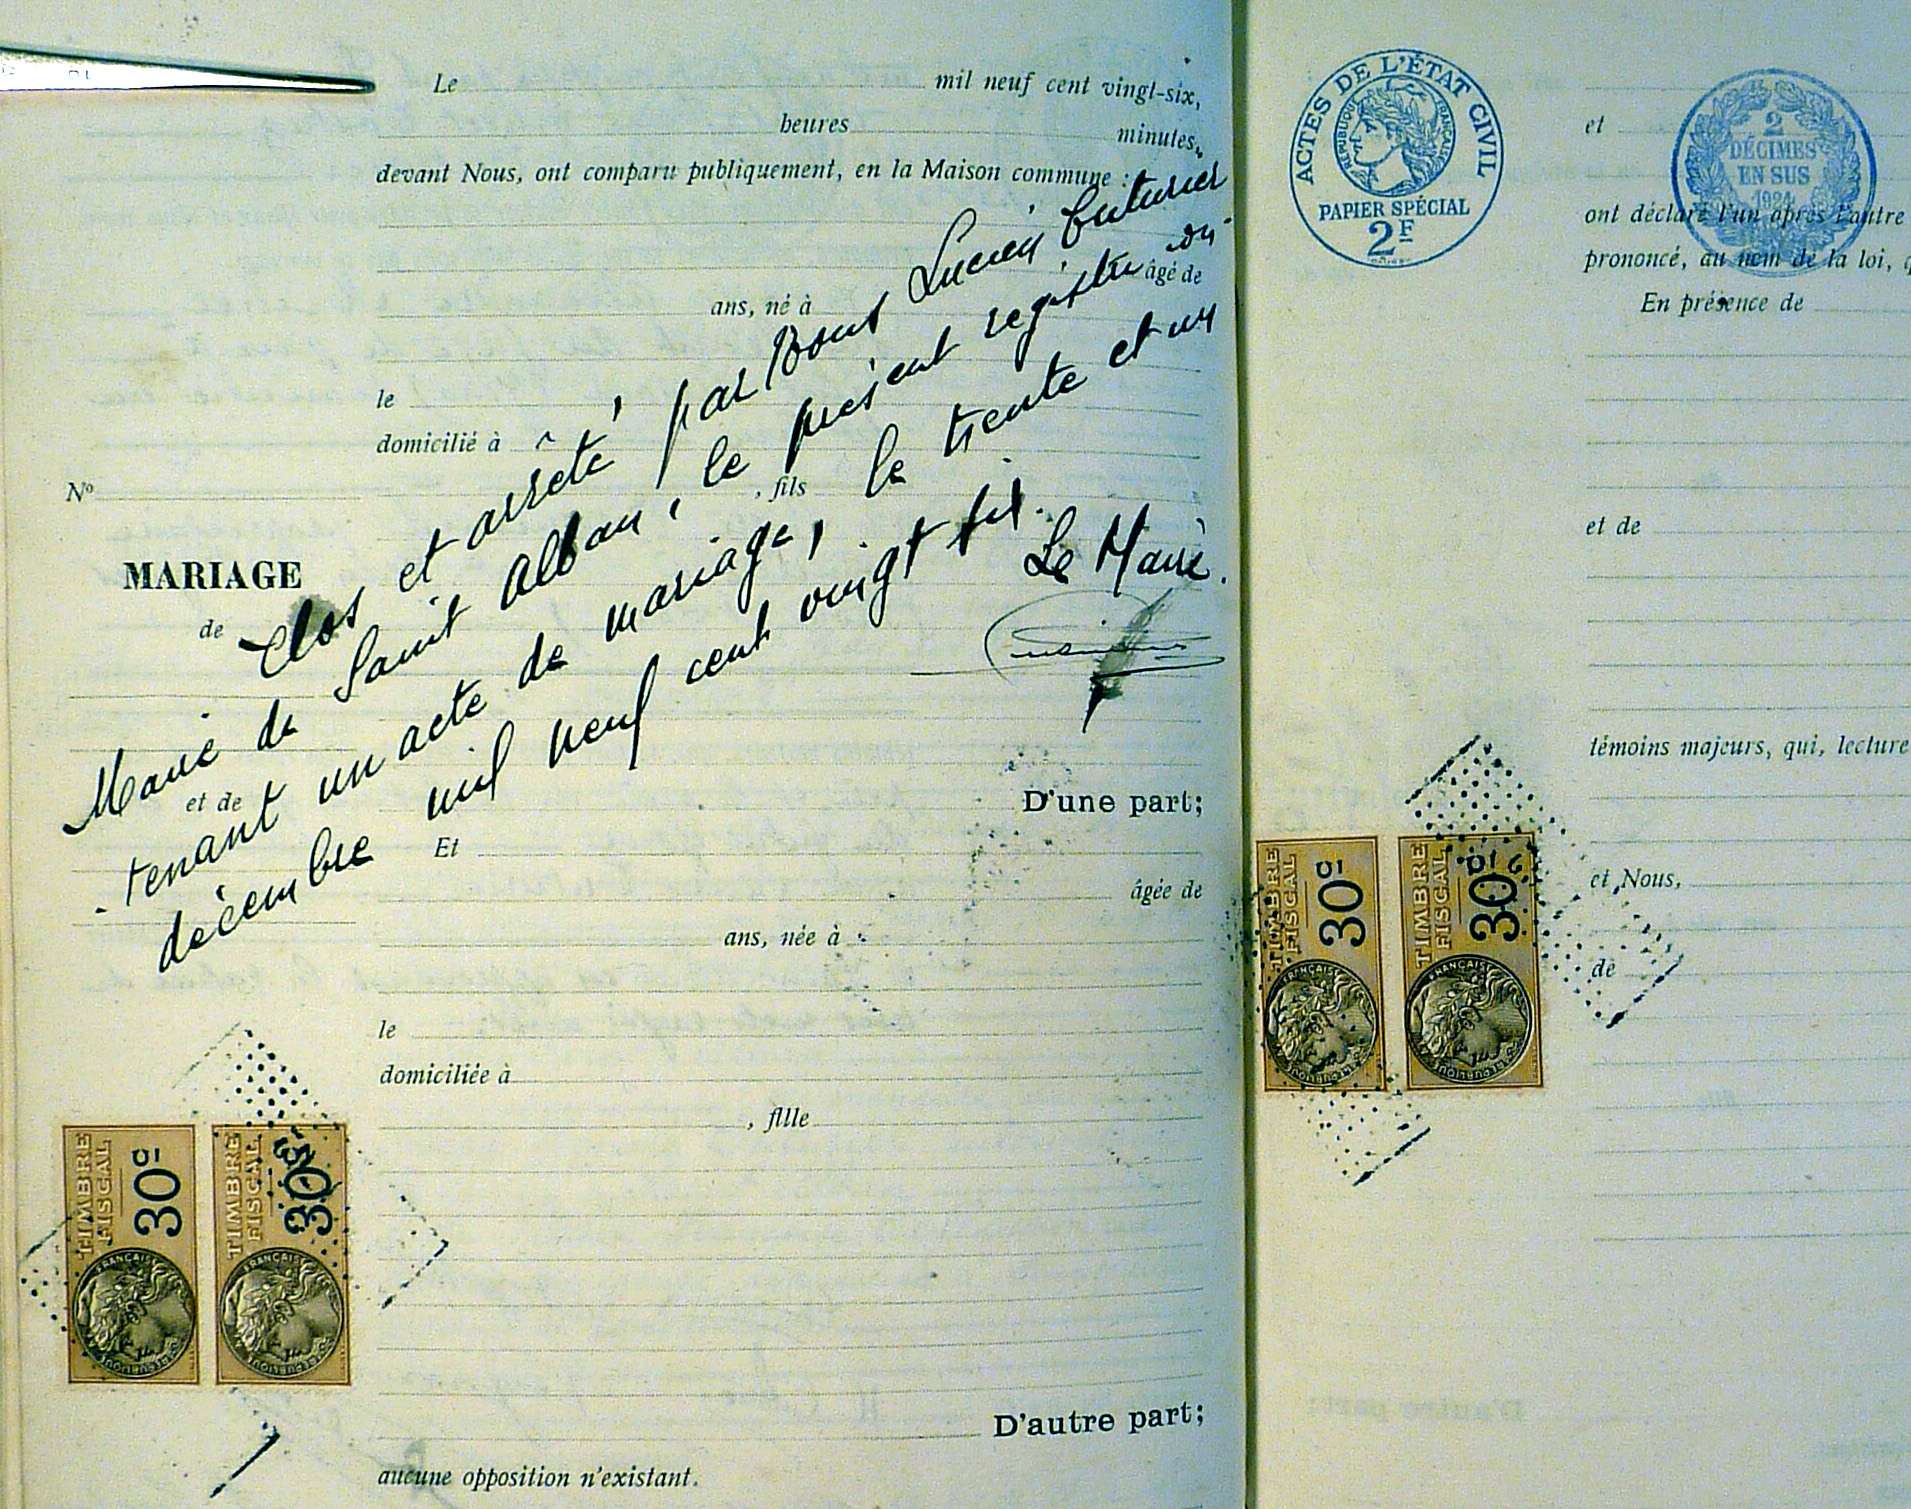 Le mil neuf cent vingt-six,
heures minutes,
devant Nous, ont comparu publiquement, en la Maison commune :
âgé de
ans, né à
le
domicilié à
, fils
No
MARIAGE
de
et de
Clos et arrêté, par Nous Lucien
Maire de Saint Alban, le présent registre con-
-tenant un acte de mariage, le trente et un
décembre mil neuf cent vingt six.
Le Maire.
D'une part;
Et
âgée de
ans, née à
le
domiciliée à
, fille
TIMBRE FISCAL
30c
RÉPUBLIQUE FRANÇAISE
TIMBRE FISCAL
30c
RÉPUBLIQUE FRANÇAISE
D'autre part;
aucune opposition n'existant.
ACTES DE L'ÉTAT CIVIL
RÉPUBLIQUE FRANÇAISE
PAPIER SPÉCIAL
2F
2
DÉCIMES
EN SUS
1924
et
ont déclaré l'un après l'autre
prononcé, au nom de la loi, q
En présence de
et de
témoins majeurs, qui, lecture
et Nous,
de
TIMBRE FISCAL
30c
RÉPUBLIQUE FRANÇAISE
TIMBRE FISCAL
30c
RÉPUBLIQUE FRANÇAISE